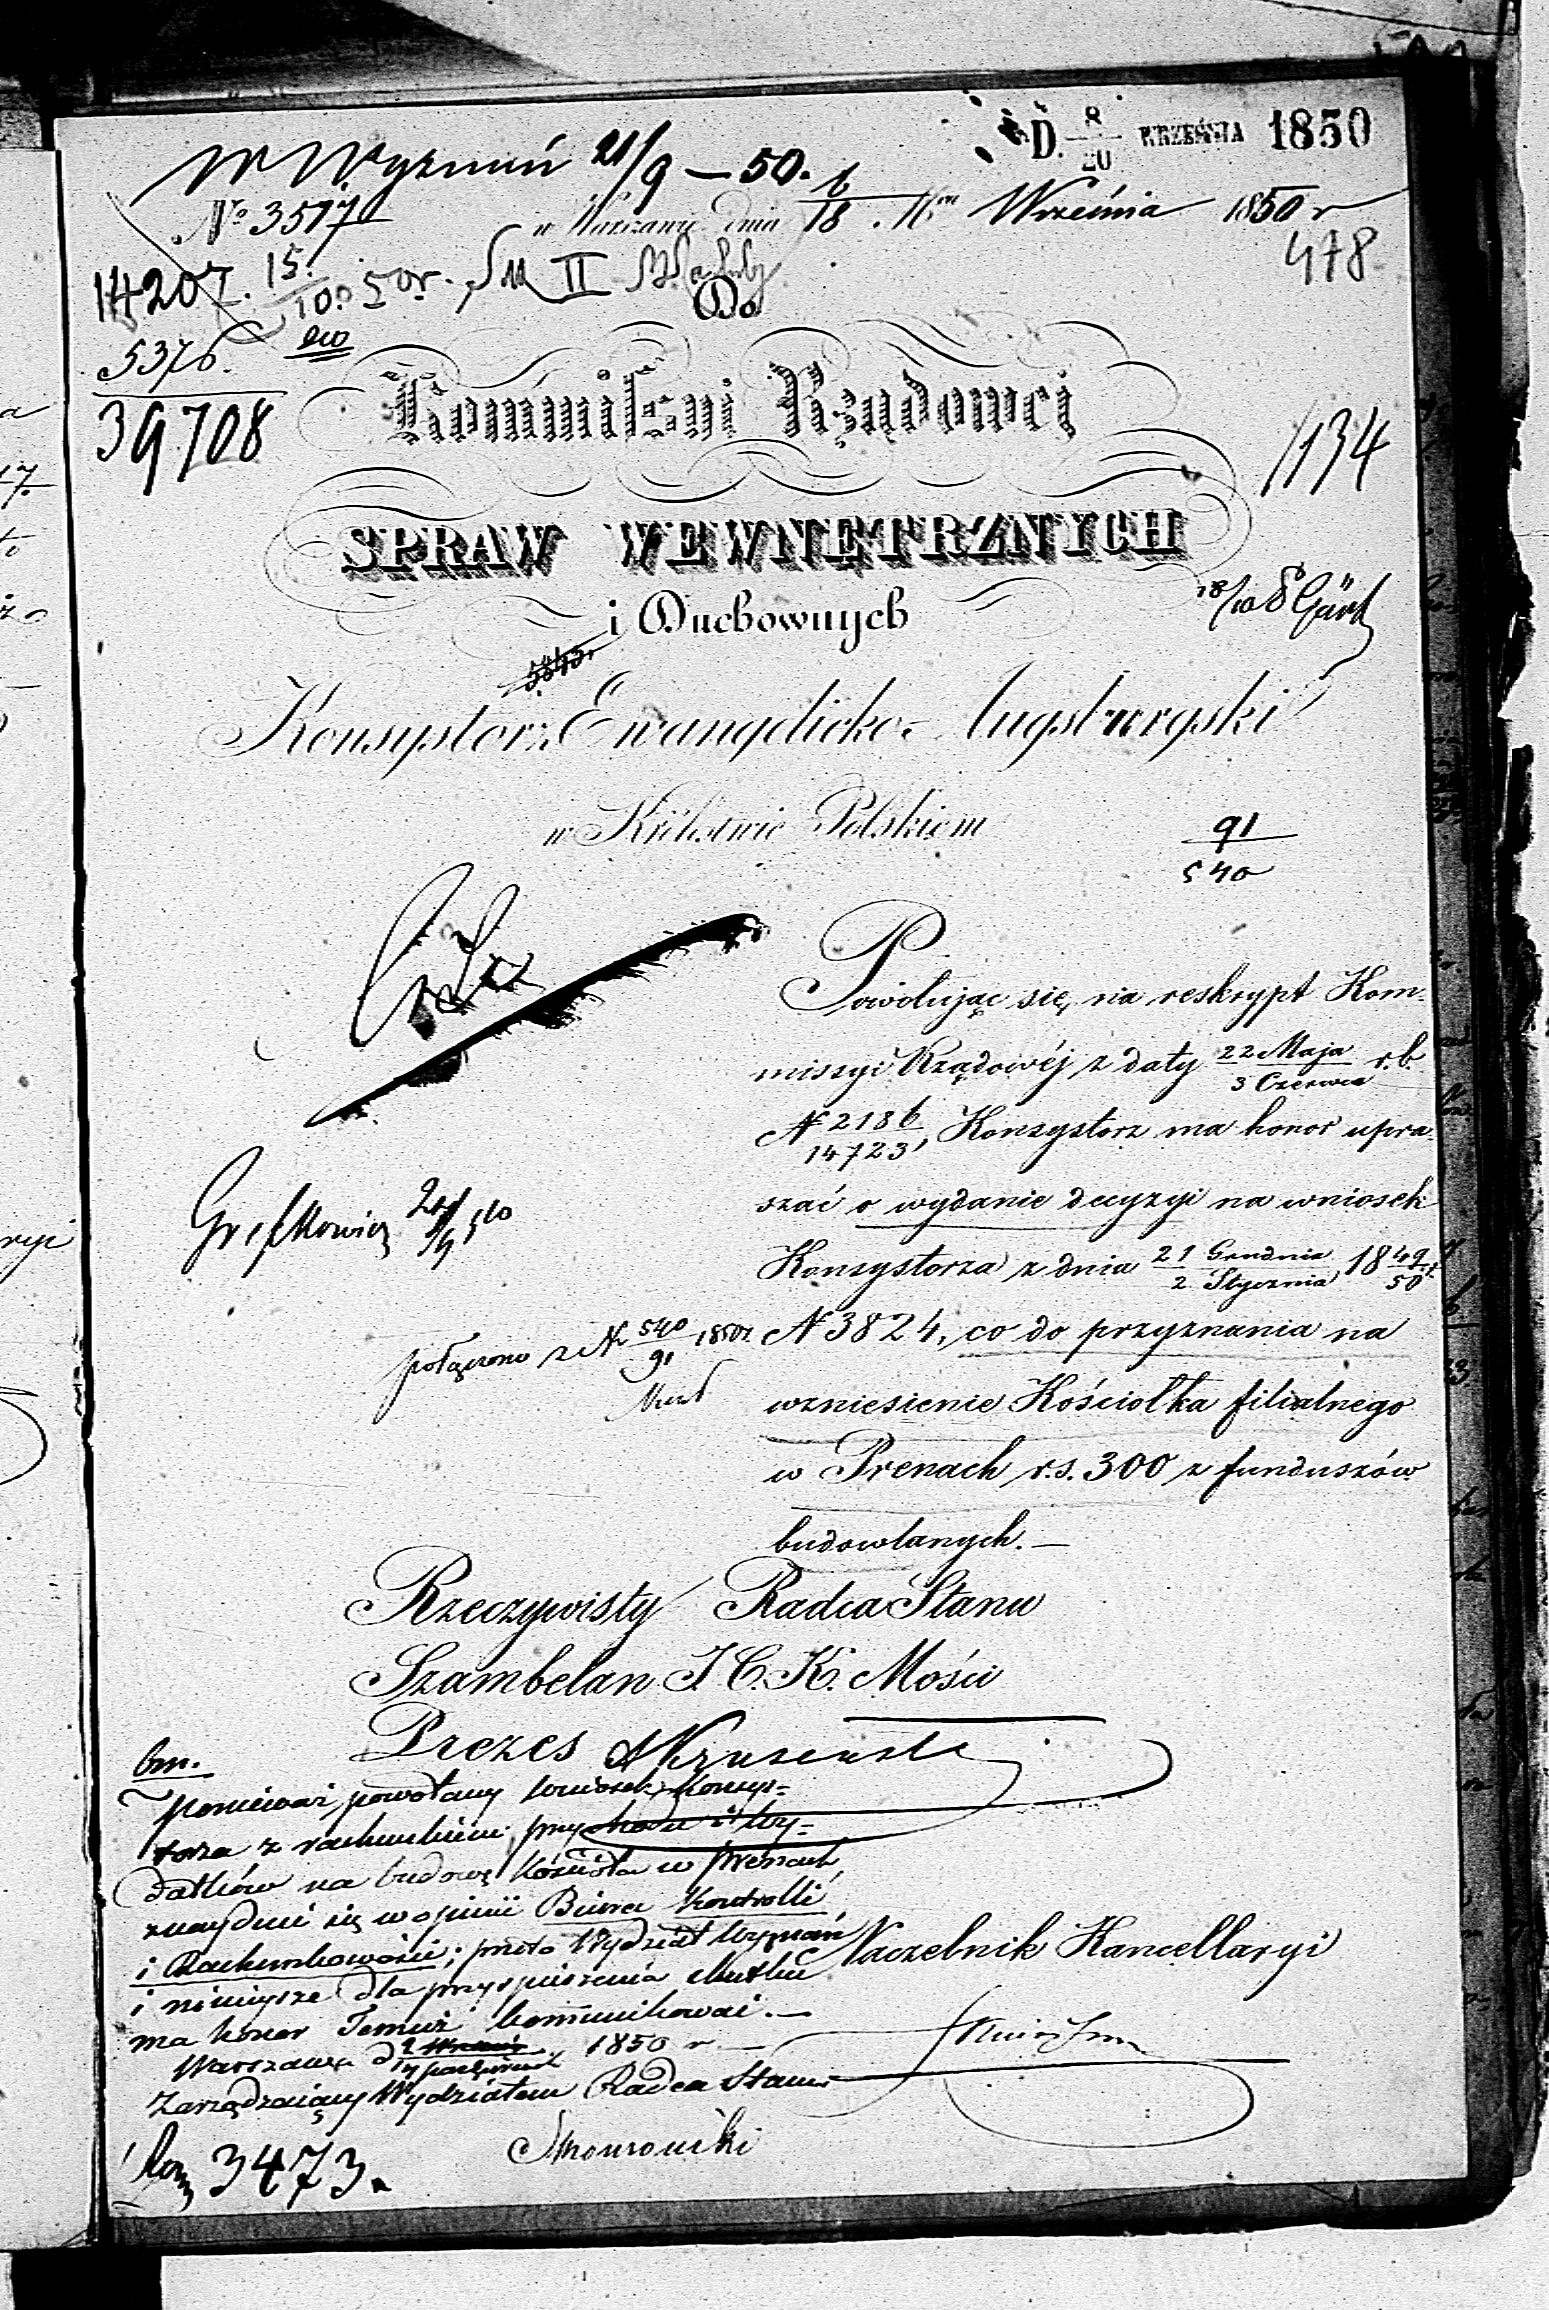 D. 8/20 WRZEŚNIA 1850
W Wyznań 21/9 — 50.
No 3517
w Warszawie dnia 6/18 Września 1850 r
478
14207. 15/10 50r. II
Do
5376.
39708
Kommissyi Rządowej
1134
SPRAW WEWNĘTRZNYCH
i Duchownych
18/10
Konsystorz Ewangelicko-Augsburgski
w Królestwie Polskiem
91/540
Powołując się na reskrypt Kom-
missyi Rządowéj z daty 22 Maja/3 Czerwca r.b.
N 2186/14723, Konsystorz ma honor upra-
szać o wydanie decyzyi na wniosek
Konsystorza z dnia 21 Grudnia/2 Stycznia 1849/50 r.
N 3824, co do przyznania na
wzniesienie Kościołka filialnego
w Prenach r.s. 300 z funduszów
budowlanych. —
połączono z N 540/91 1850r.
Rzeczywisty Radca Stanu
Szambelan J. C. K. Mości
Prezes
bm.
Ponieważ powołany wniosek Konsys-
torza z rachunkiem przychodu i wy-
datków na budowę Kościoła w Prenach,
znajduje się w opinii Biura Kontrolli
i Rachunkowości; przeto Wydział Wyznań
i niniejsze dla przyspieszenia skutku
ma honor Temuż komunikować. —
Warszawa d 1850 r. —
Zarządzający Wydziałem Radca Stanu
Naczelnik Kancellaryi
3473.